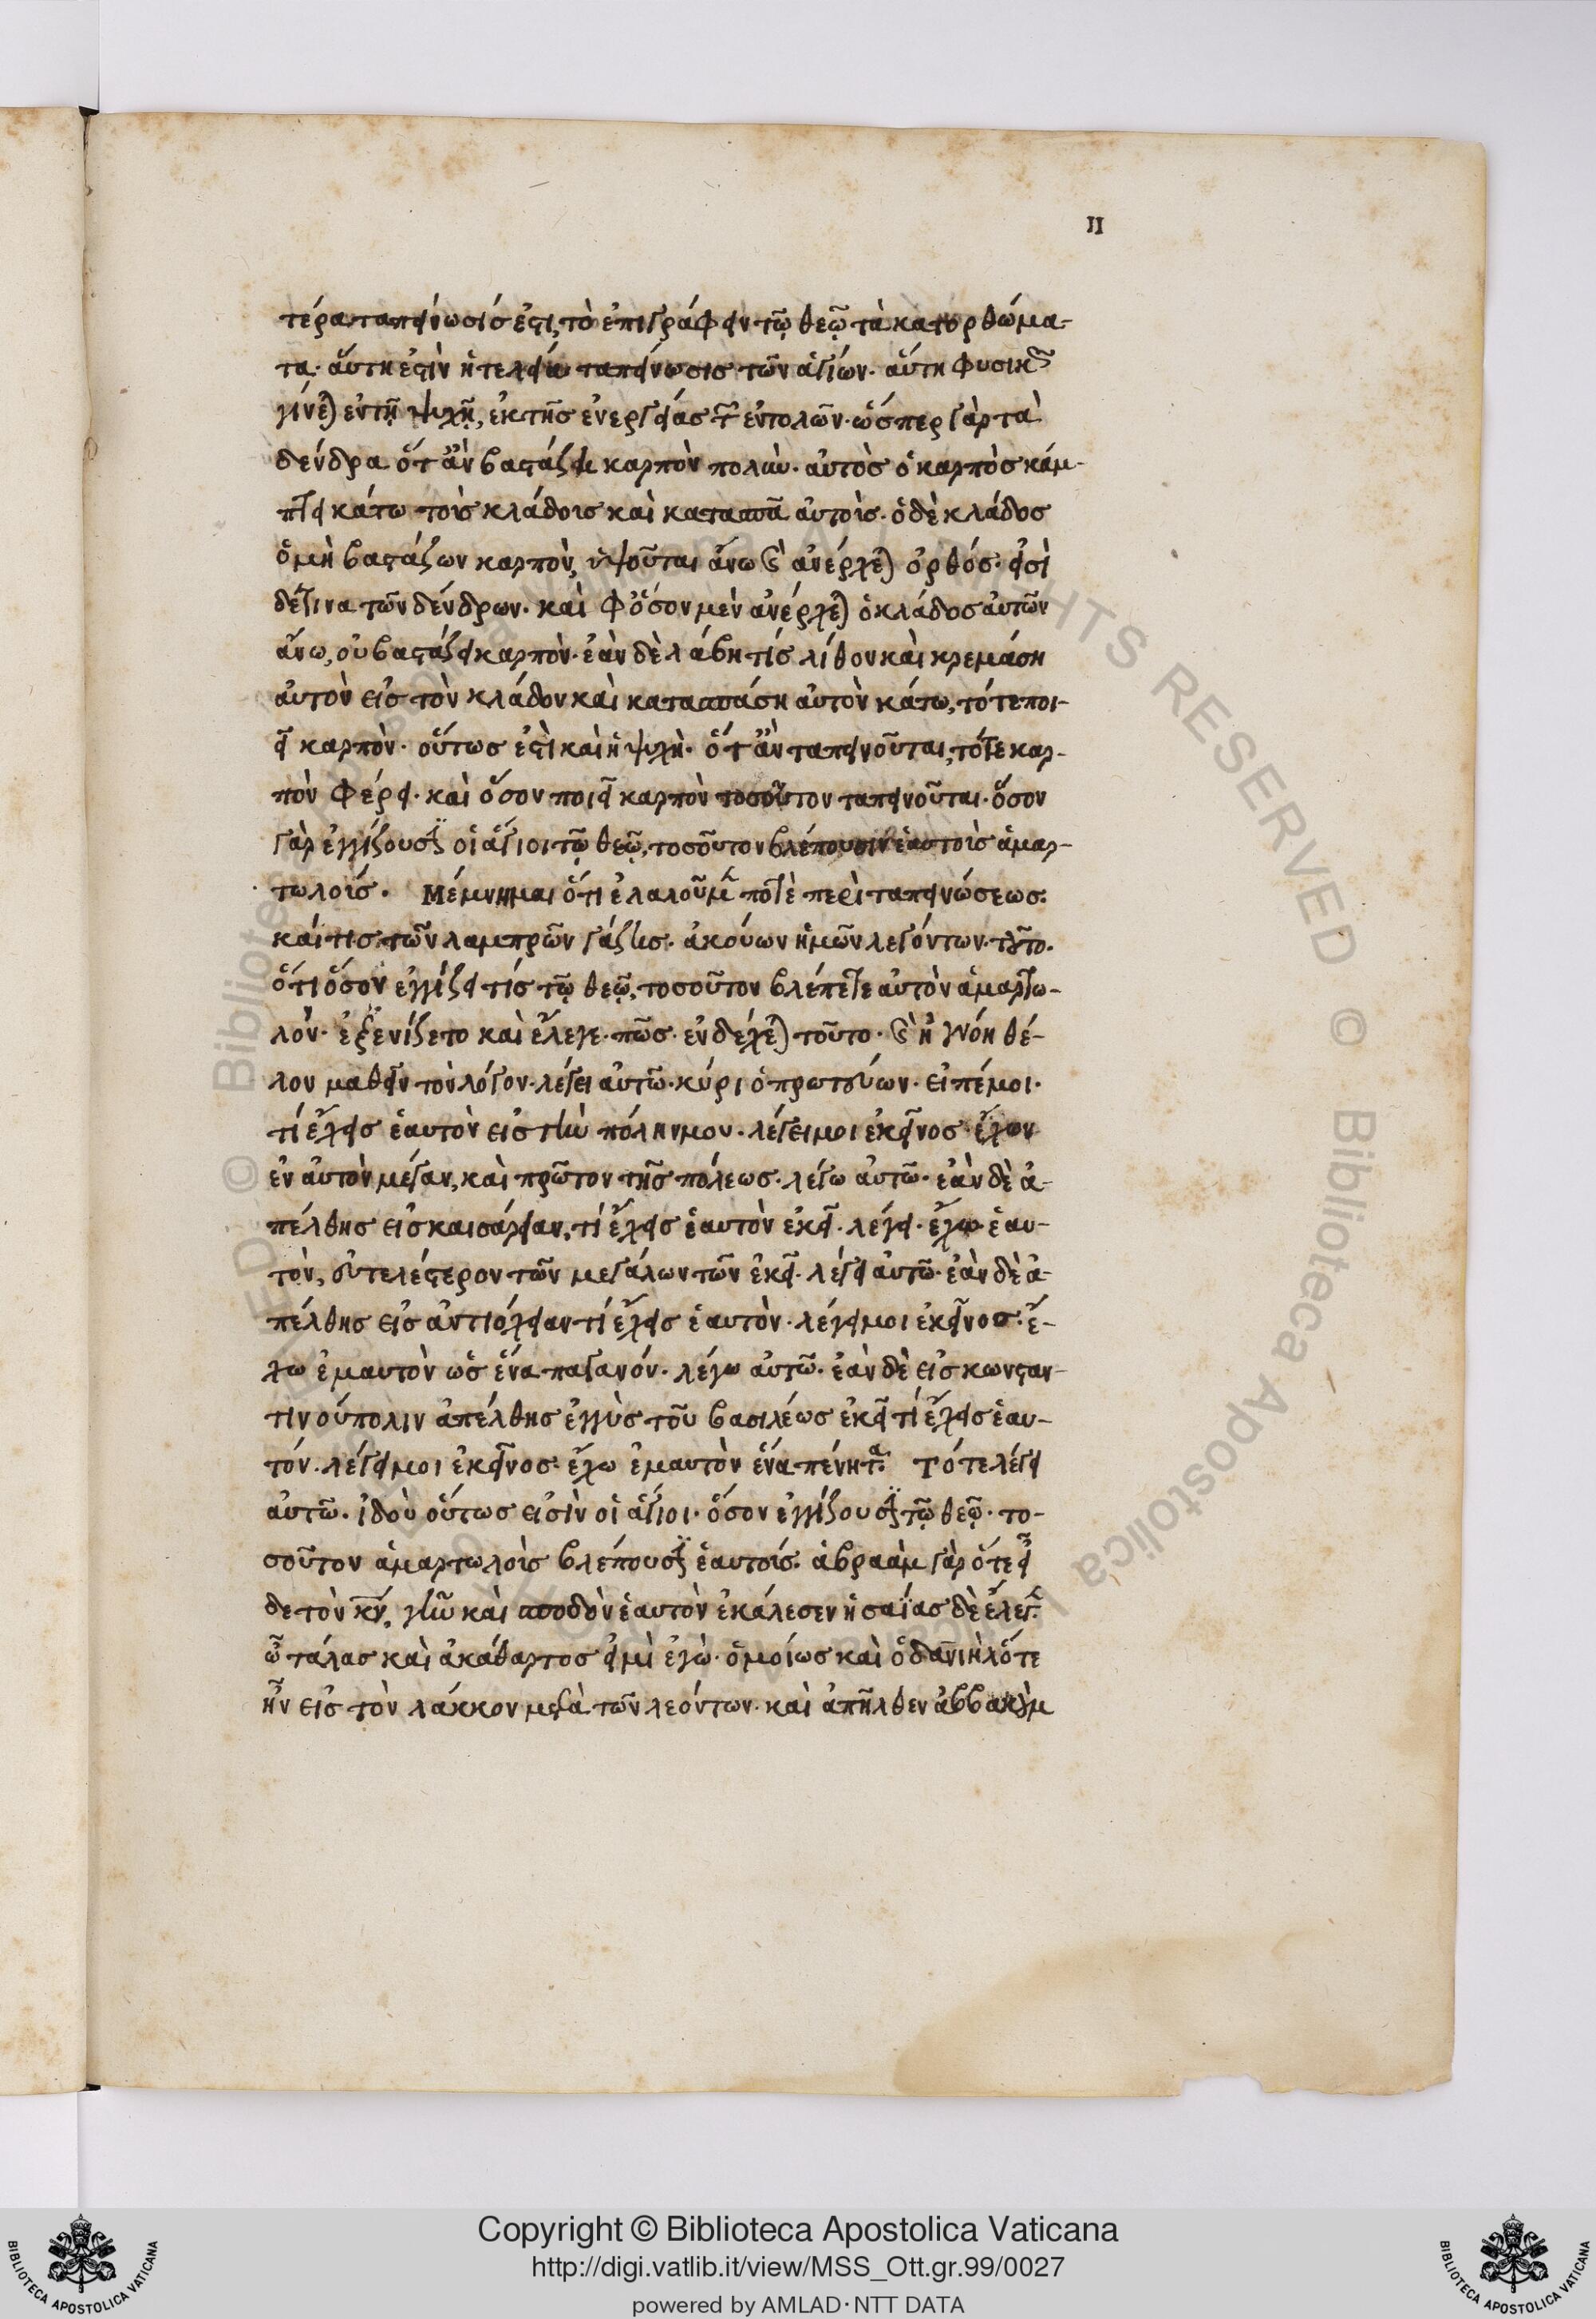 11
τέρα ταπείνωσίς ἐστι, τὸ ἐπιγράφειν τῷ θεῷ τὰ κατορθώμα-
τα· αὕτη ἐστὶν ἡ τελεία ταπείνωσις τῶν ἁγίων· αὕτη φυσικῶς
γίνεται ἐν τῇ ψυχῇ, ἐκ τῆς ἐνεργείας τῶν ἐντολῶν· ὥσπερ γὰρ τὰ
δένδρα ὅτ' ἂν βαστάζει καρπὸν πολὺν· αὐτὸς ὁ καρπὸς κάμ-
πτει κάτω τοῖς κλάδοις καὶ κατασπᾶ αὐτοὶς· ὁ δὲ κλάδος
ὁ μὴ βαστάζων καρπὸν, ὑψοῦται ἄνω καὶ ἀνέρχεται ὀρθός· εἰσὶ
δέ τινα τῶν δένδρων· καὶ ἐφ ὅσον μὲν ἀνέρχεται ὁ κλάδος αὐτῶν
ἄνω, οὐ βαστάζει καρπὸν· ἐὰν δὲ λάβη τίς λίθον καὶ κρεμάση
αὐτὸν εἰς τὸν κλάδον καὶ κατασπάση αὐτὸν κάτω, τότε ποι-
εῖ καρπὸν· οὕτως ἐστὶ καὶ ἡ ψυχὴ· ὅτ' ἂν ταπεινοῦται, τότε καρ-
πὸν φέρει· καὶ ὅσον ποιεῖ καρπὸν τοσοῦτον ταπεινοῦται· ὅσον
γὰρ ἐγγίζουσιν οἱ ἅγιοι τῷ θεῷ, τοσοῦτον βλέπουσιν ἑαυτοὶς ἁμαρ-
τωλοίς. Μέμνημαι ὅτι ἐλαλοῦμεν ποτὲ περὶ ταπεινώσεως·
καί τις τῶν λαμπρῶν γάζης· ἀκούων ἡμῶν λεγόντων τοῦτο·
ὅτι ὅσον ἐγγίζει τίς τῷ θεῷ, τοσοῦτον βλέπει αὐτὸν ἁμαρτω-
λὸν· ἐξενίζετο καὶ ἔλεγε· πῶς ἐνδέχεται τοῦτο· καὶ ἠγνόη θέ-
λον μαθεῖν τὸν λόγον· λέγει αὐτῶ· κύρι ὁ πρωτεύων· εἰπέ μοι·
τί ἔχεις ἑαυτὸν εἰς τὴν πόλην μου· λέγει μοι ἐκεῖνος· ἔχων
ἐν αὐτὸν μέγαν, καὶ πρῶτον τῆς πόλεως· λέγω αὐτῶ· ἐὰν δὲ ἀ-
πέλθης εἰς καισάρειαν, τί ἔχεις ἑαυτὸν ἐκεῖ· λέγει· ἔχω ἑαυ-
τὸν, εὐτελέστερον τῶν μεγάλων τῶν ἐκεῖ· λέγει αὐτῶ· ἐὰν δὲ ἀ-
πέλθης εἰς ἀντιόχειαν τί ἔχεις ἑαυτὸν· λέγει μοι ἐκεῖνος· ἔ-
χω ἐμαυτὸν ὡς ἕνα παγανόν· λέγω αὐτῶ· ἐὰν δὲ εἰς κωνσταν-
τινούπολιν ἀπέλθης ἐγγὺς τοῦ βασιλέως ἐκεῖ τί ἔχεις ἑαυ-
τόν· λέγει μοι ἐκεῖνος· ἔχω ἐμαυτὸν ἕνα πένητα· Τότε λέγει
αὐτῶ· ἰδοὺ οὕτως εἰσὶν οἱ ἅγιοι· ὅσον ἐγγίζουσι τῷ θεῷ· το-
σοῦτον ἁμαρτωλοὶς βλέπουσιν ἑαυτοίς· ἀβραὰμ γὰρ ὅτε εἶ
δε τὸν κν, γῆν καὶ σποδὸν ἑαυτὸν ἐκάλεσεν ἡσαΐας δὲ ἔλεγεν·
ὦ τάλας καὶ ἀκάθαρτος εἰμὶ ἐγὼ· ὁμοίως καὶ ὁ δανιὴλ ὅτε
ἦν εἰς τὸν λάκκον μετὰ τῶν λεόντων· καὶ ἀπῆλθεν ἀββακοὺμ
Copyright © Biblioteca Apostolica Vaticana
http://digi.vatlib.it/view/MSS_Ott.gr.99/0027
powered by AMLAD·NTT DATA